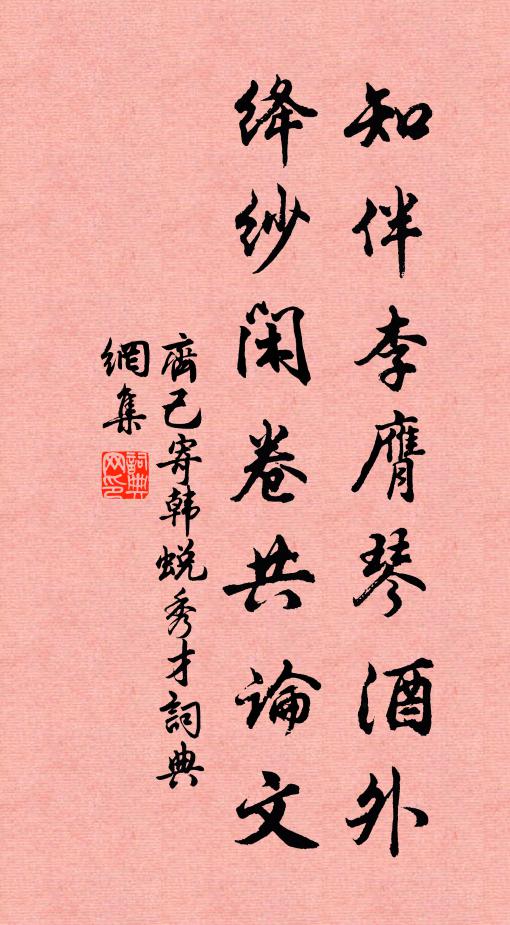 知伴李膺琴酒外
绛纱闲卷共论文
齊己寄韩蜕秀才詞典
網集
詞典网印